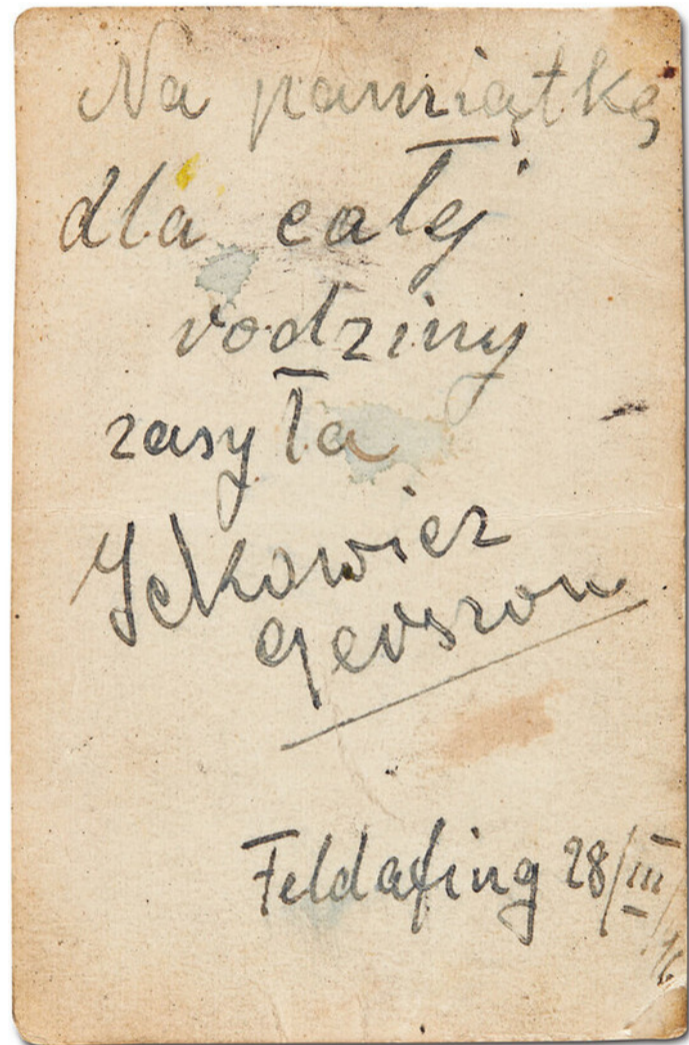 Na pamiątkę
dla całej
rodziny
zasyła
Ickowicz
Gerszon
Feldafing 28/III